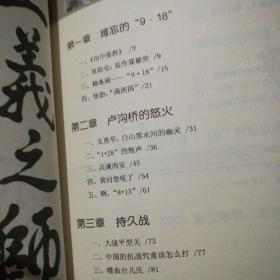 義之師
第一章 难忘的“9·18”
一、《田中奏折》/3
二、皇姑屯，张作霖被炸
三、柳条湖——“9·18”/15
四、怪胎：“满洲国”/21
第二章 卢沟桥的怒火
一、义勇军，白山黑水间的幽灵 /31
二、“1·28”的炮声 /36
三、兵谏西安 /41
四、黄河怒吼了 /45
五、啊，“8·13”/61
第三章 持久战
一、大战平型关 /73
二、中国的抗战究竟该怎么打 /77
三、喋血台儿庄 /81